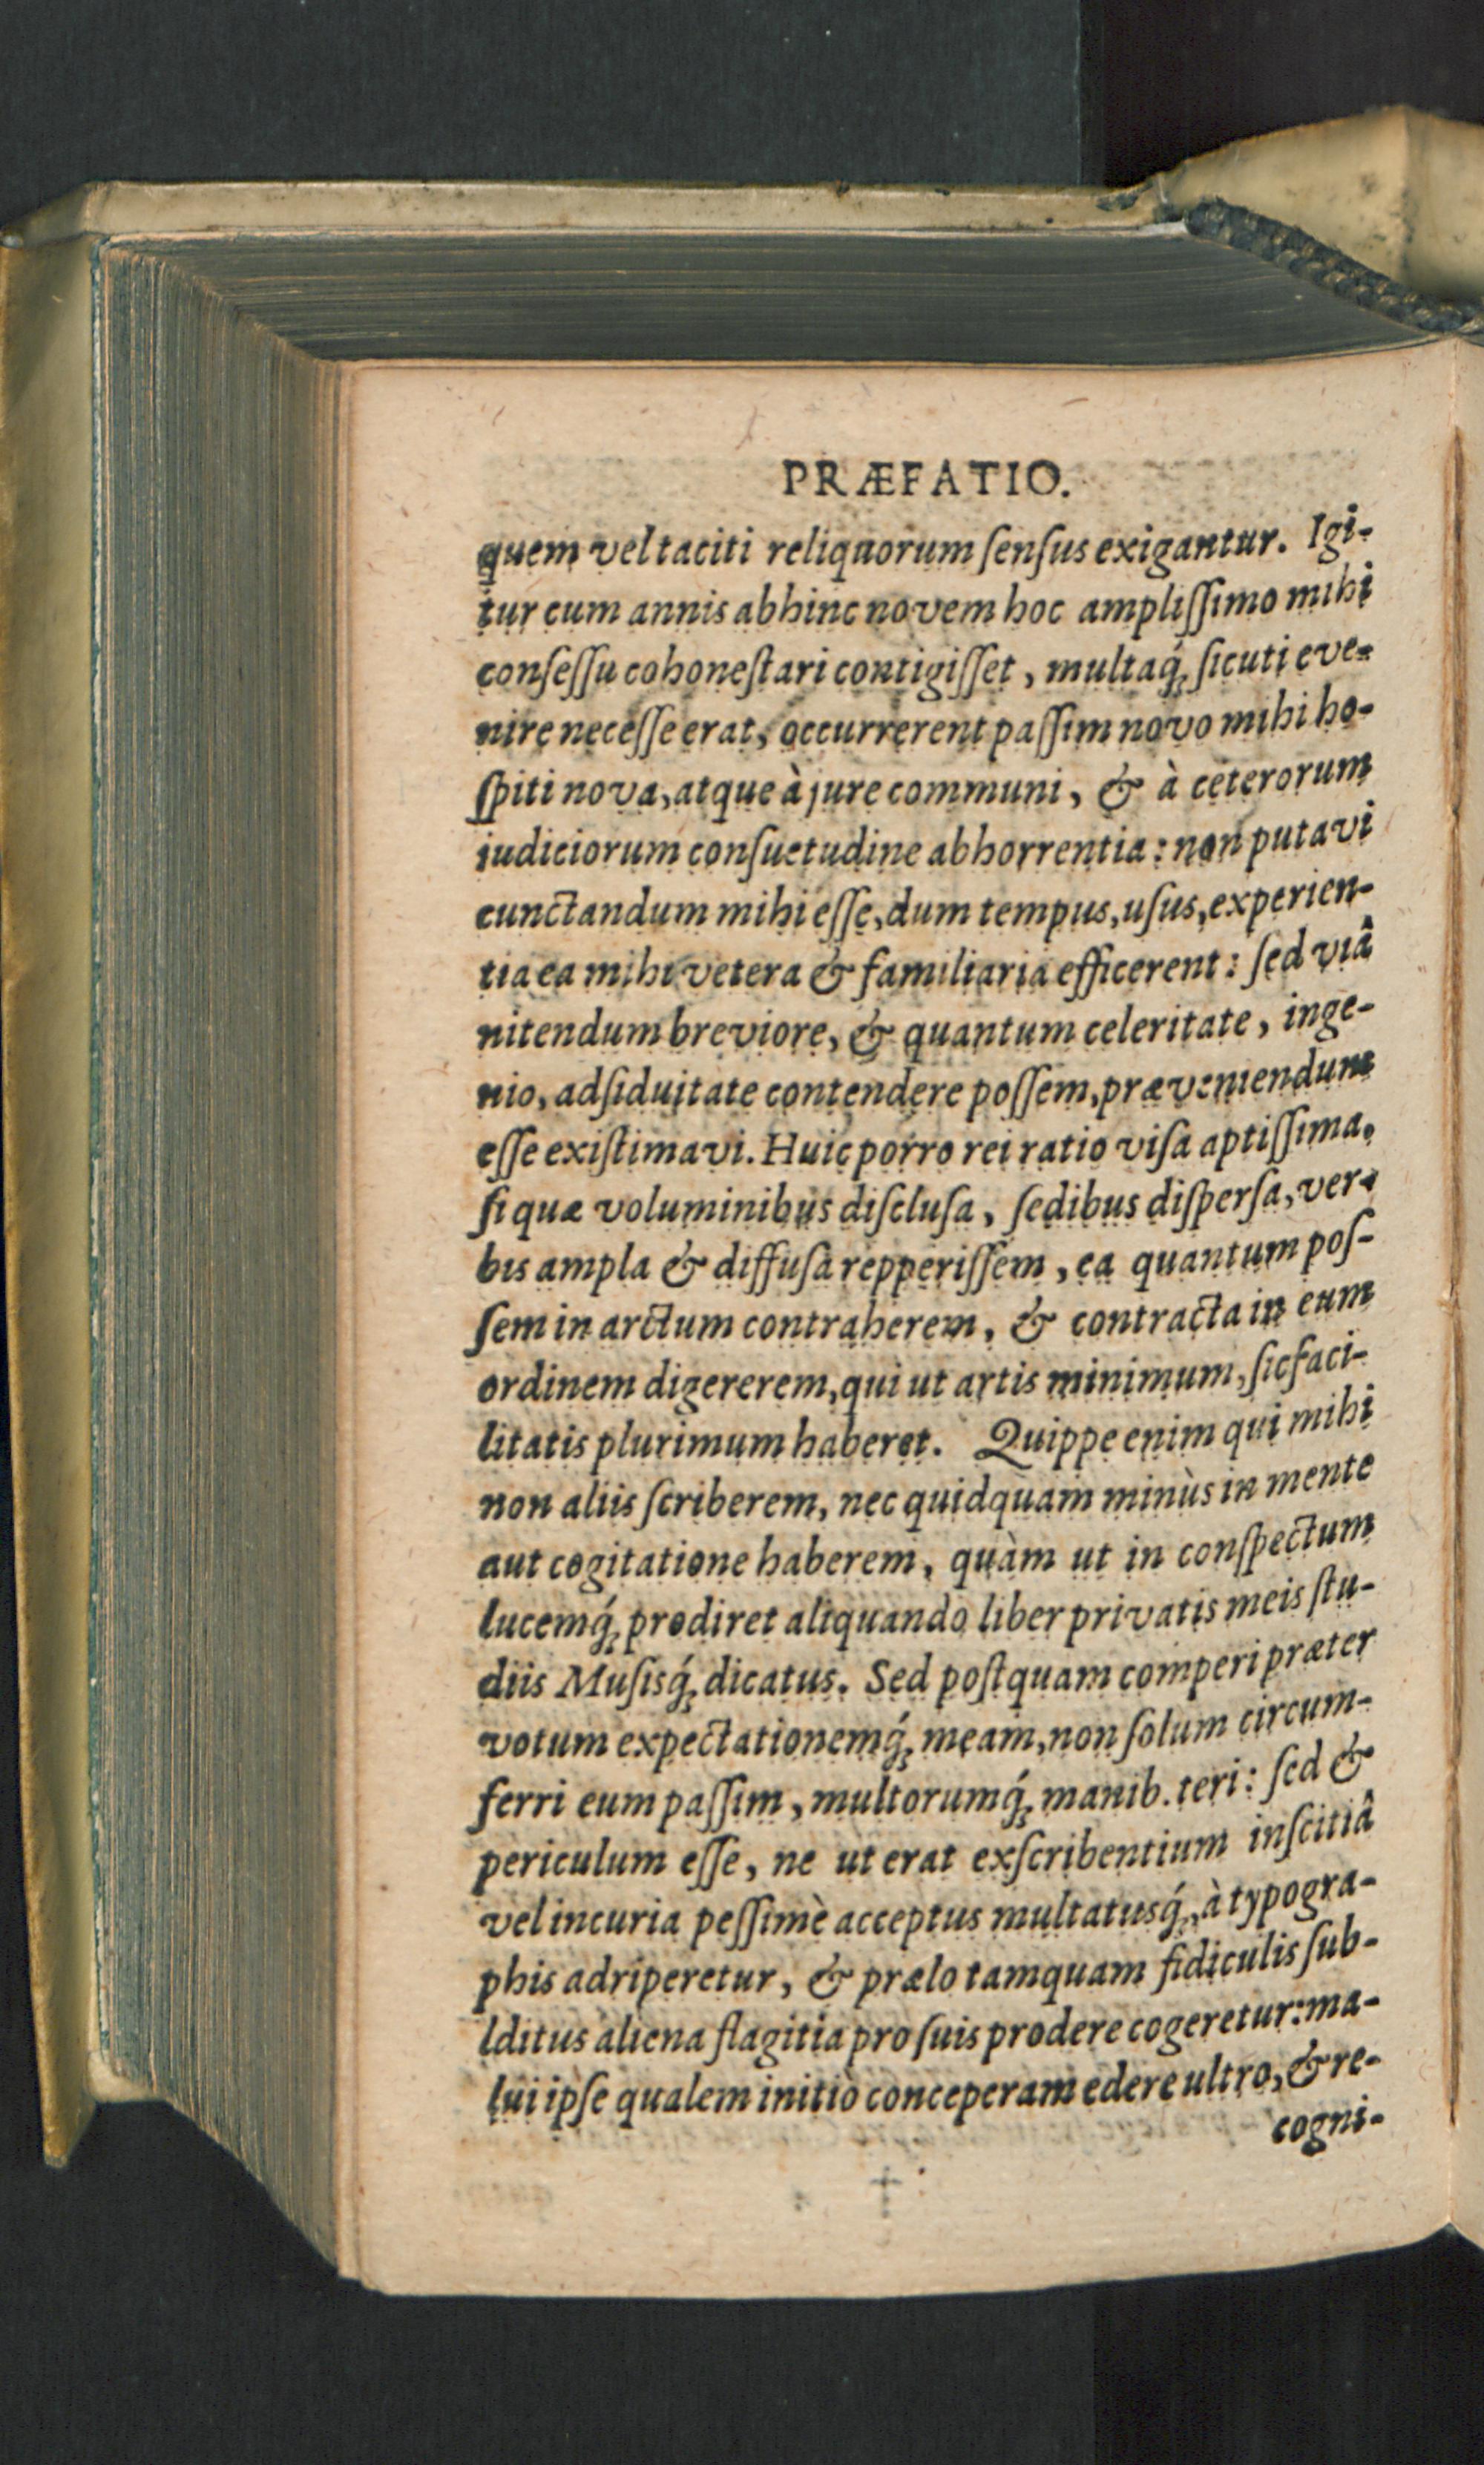 PRÆFATIO.
quem vel taciti reliquorum ſenſus exigantur. Igi-
tur cum annis abhinc novem hoc ampliſſimo mihi
conſeſſu cohoneſtari contigiſſet, multaq́; ſicuti eve-
nire neceſſe erat, occurrerent paſſim novo mihi ho-
ſpiti nova, atque à jure communi, & à ceterorum
iudiciorum conſuetudine abhorrentia: non putavi
cunctandum mihi eſſe, dum tempus, uſus, experien-
tia ea mihi vetera & familiaria efficerent: ſed viâ
nitendum breviore, & quantum celeritate, inge-
nio, adſiduitate contendere poſſem, præveniendum
eſſe exiſtimavi. Huic porro rei ratio viſa aptiſſima,
ſi quæ voluminibus diſcluſa, ſedibus diſperſa, ver-
bis ampla & diffuſa repperiſſem, ea quantum poſ-
ſem in arctum contraherem, & contracta in eum
ordinem digererem, qui ut artis minimum, ſic faci-
litatis plurimum haberet. Quippe enim qui mihi
non aliis ſcriberem, nec quidquam minùs in mente
aut cogitatione haberem, quàm ut in conſpectum
lucemq́; prodiret aliquando liber privatis meis ſtu-
diis Muſisq́; dicatus. Sed poſtquam comperi præter
votum expectationemq́; meam, non ſolum circum-
ferri eum paſſim, multorumq́; manib. teri: ſed &
periculum eſſe, ne ut erat exſcribentium inſcitiâ
vel incuria peſſimè acceptus multatusq́;, à typogra-
phis adriperetur, & prælo tamquam fidiculis ſub-
lditus aliena flagitia pro ſuis prodere cogeretur: ma-
lui ipſe qualem initiò conceperam edere ultro, & re-
cogni-